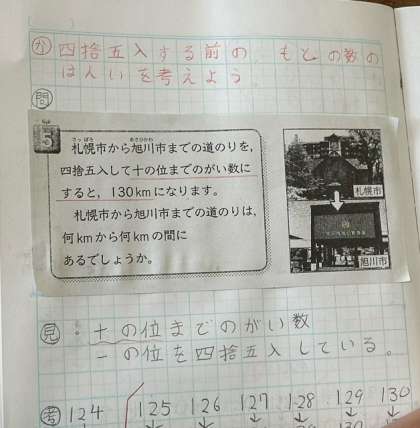 か 四捨五入する前の もとの数の
はんいを考えよう
問
5
さっぽろ あさひかわ
札幌市から旭川市までの道のりを,
四捨五入して十の位までのがい数に
すると, 130kmになります。
札幌市から旭川市までの道のりは,
何kmから何kmの間に
あるでしょうか。
札幌市
旭川市
見 ・十の位までのがい数
一の位を四捨五入している。
考 124 125 126 127 128 129 130
↓ ↓ ↓ ↓ ↓ ↓